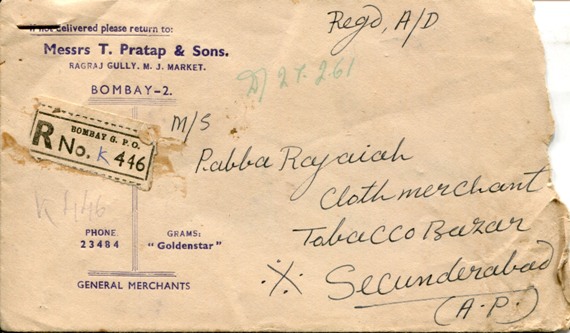 If not delivered please return to:
Messrs T. Pratap & Sons.
RAGRAJ GULLY, M. J. MARKET.
BOMBAY-2.
Regd, A/D
D/ 27.2.61
R BOMBAY G. P. O.
No. K 446
K 446
M/S
Pabba Rajaiah
Cloth merchant
Tobacco Bazar
Secunderabad
(A.P.)
PHONE: 23484
GRAMS: "Goldenstar"
GENERAL MERCHANTS